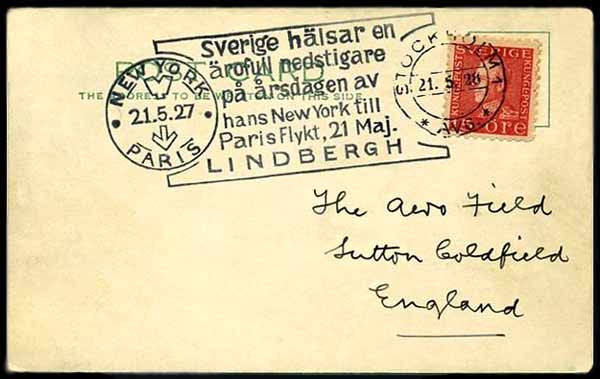 POST CARD
THE ADDRESS TO BE WRITTEN ON THIS SIDE
NEW YORK
21.5.27
PARIS
Sverige hälsar en
ärofull nedstigare
på årsdagen av
hans New York till
Paris Flykt, 21 Maj.
LINDBERGH
STOCKHOLM 1
21.5.28
* AVG. *
SVERIGE
öre
The Aero Field
Sutton Coldfield
England